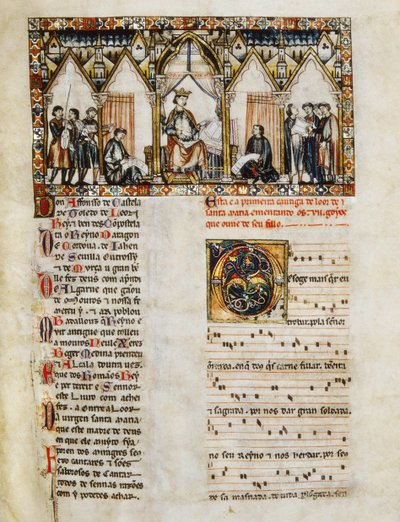 Don Affonso de Castela
de Toledo de Leon
Rey e ben des Conpostela
ta o Reyno Daragon
De Cordova de Jahen
de Sevilla outrossy
e de Murça u gran ben
lle fez deus com apndi
Do Algarue que gãou
de mouros e nossa fe
meteu y e ar poblou
Badallouz que Reyno e
Muit antigue que tolleu
a mouros Neul e Xerez
Beger Medina prendeu
e Alcala doutra uez
Que dos Romãos Rey
e per dereit e Sennor
este Liuro com achei
fez a onrr e a loor
Da uirgen santa maria
que este madre de deus
en que ele muyto fia
poren dos miragres seus
Fezo cantares e sões
saborosos de cantar
todos de sennas razões
com y podedes achar.
Esta e a primeira cantiga de loor de
santa maria ementando os .vii. goyos
que ouue de seu fillo.
Des oge mais quer eu
trobar pola sennor
onrrada. en que deus quis carne fillar. bẽeita
e sagrada. por nos dar gran soldada.
no seu Reyno e nos herdar. por seus
de sa masnada. de uida perlongada. sen